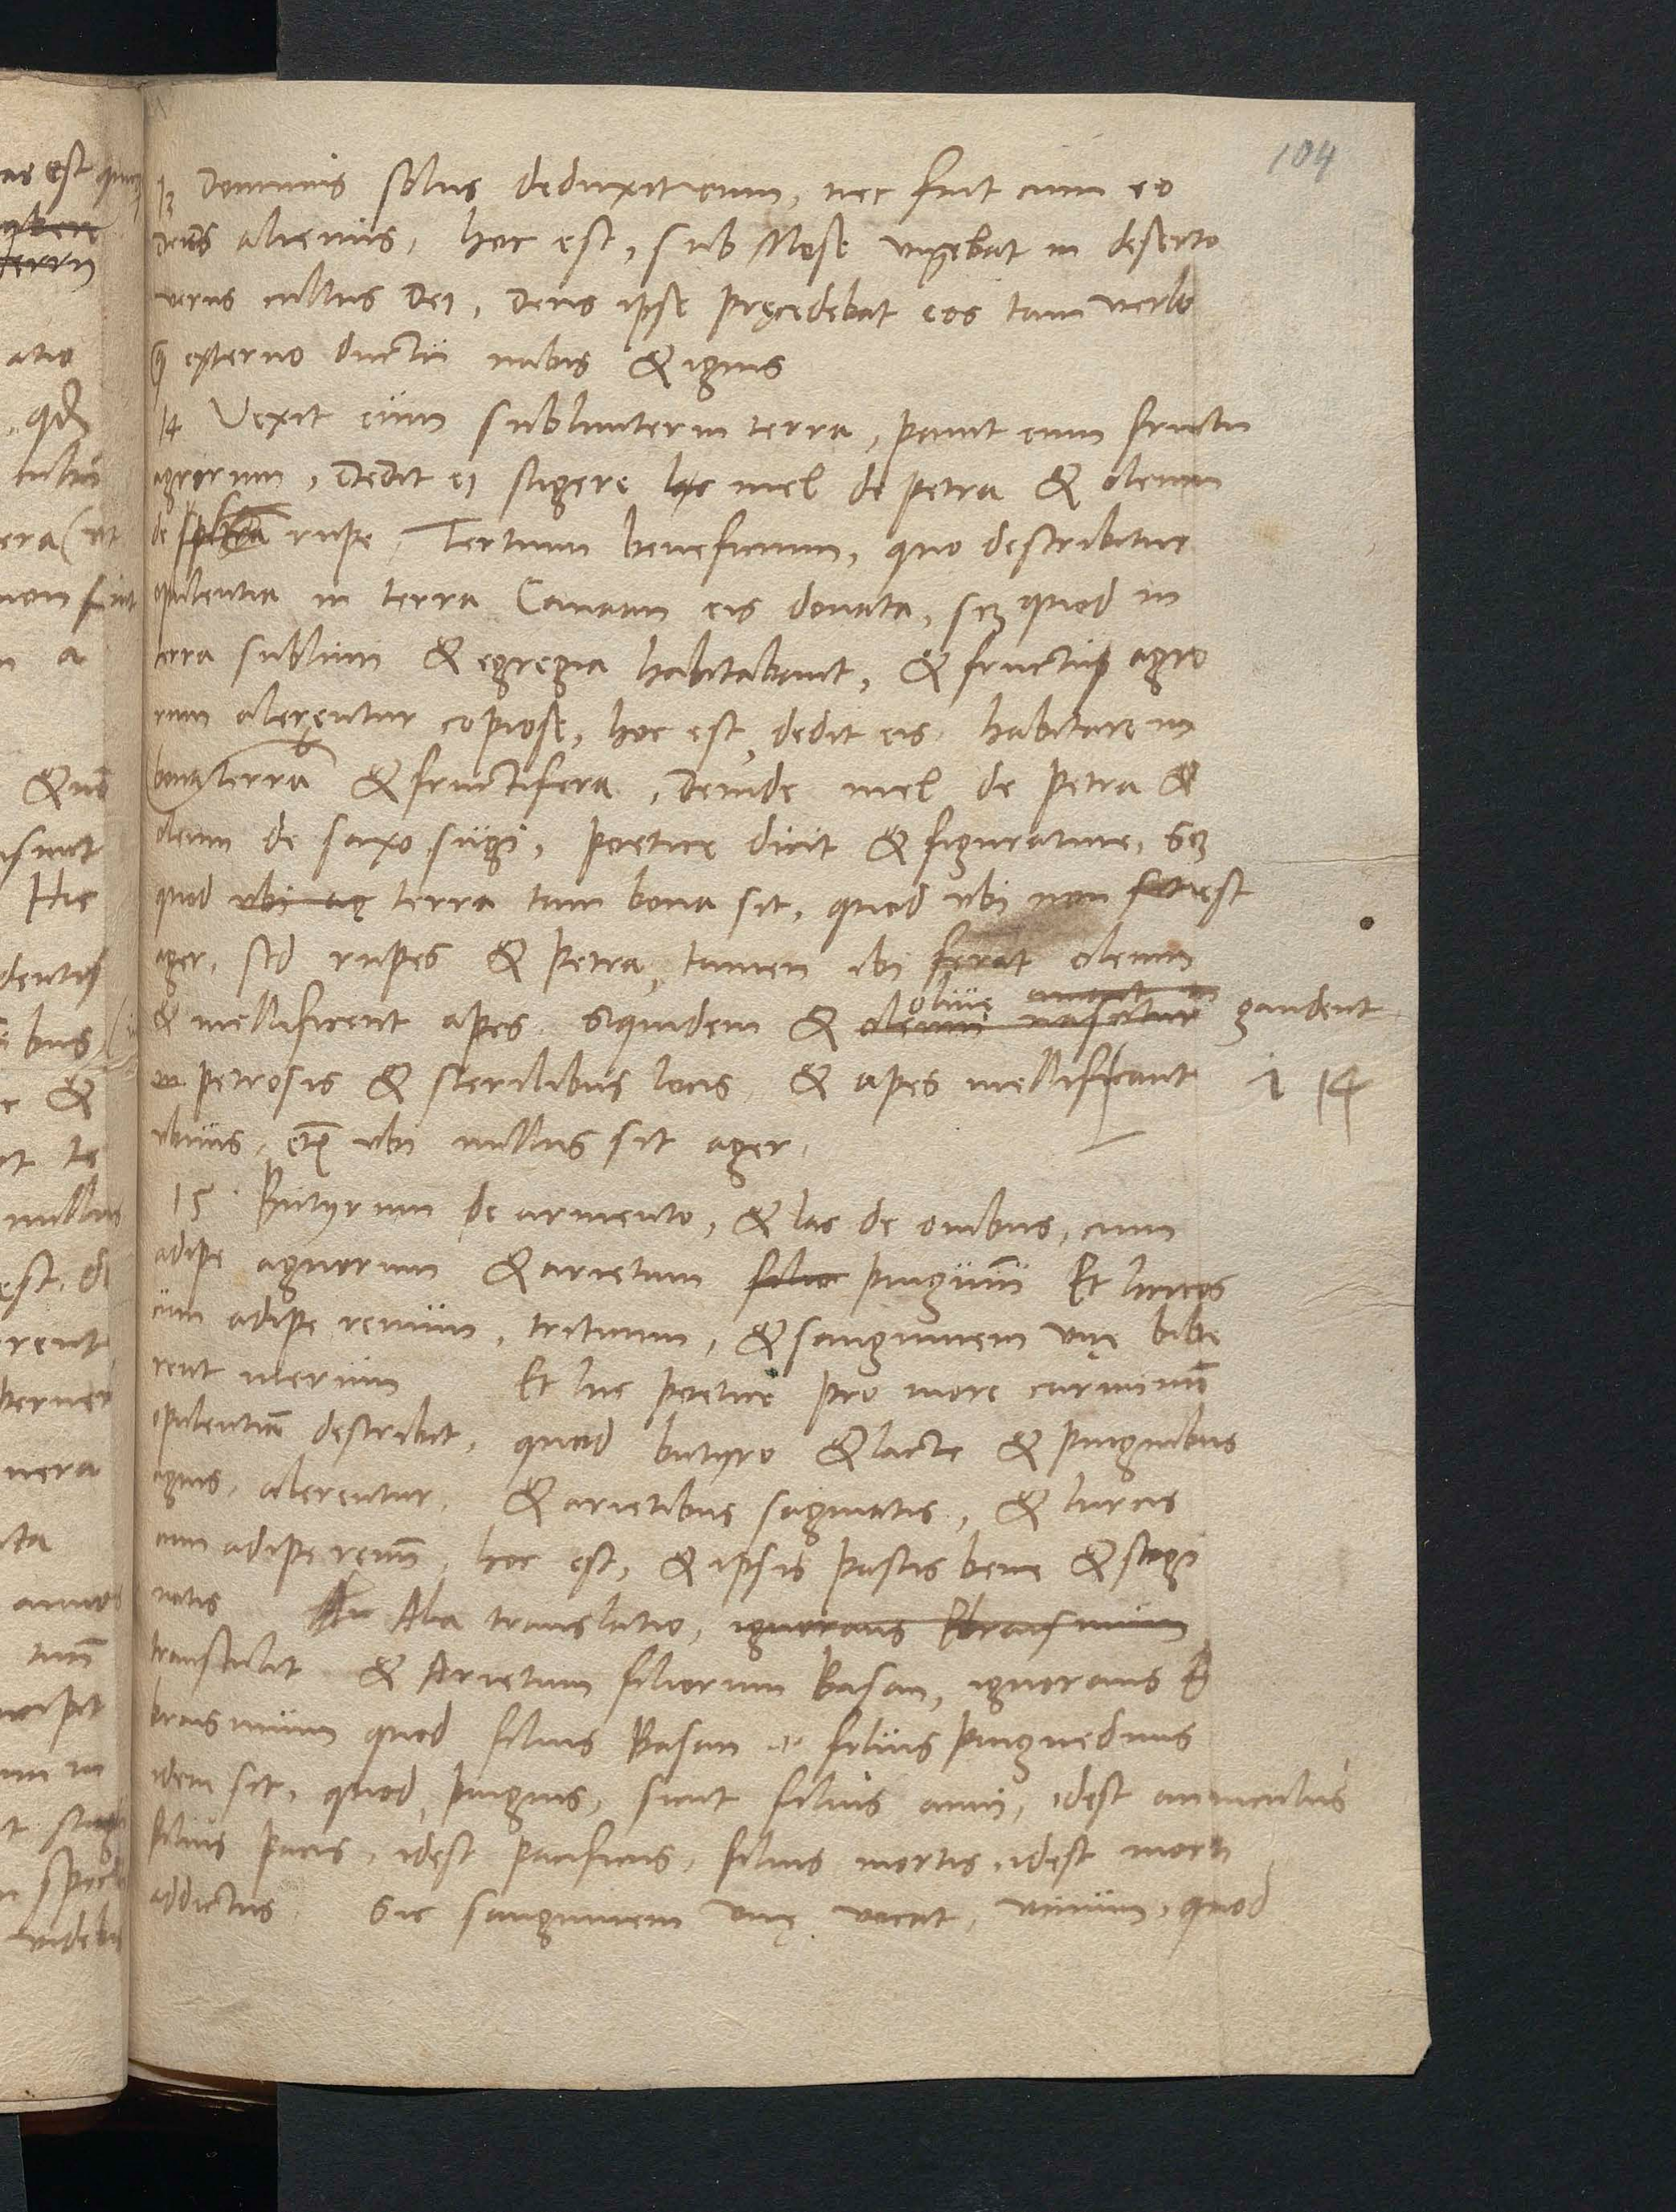 104
13 Dominus solus deduxit eum, nec fuit cum eo
deus alienus, hoc est, sub Mose vigebat in deserto
verus cultus Dei, Deus ipse pręcedebat eos tam verbo
externo ductu nubis & ignis
14 Vexit eum sublimiter in terra, pavit eum fructu
agrorum, Dedit ei sugere lac mel de petra & oleum
de petra rupe, Tertium beneficium, quo describitur
opulentia in terra Canaan eis donata, scz quod in
terra sublimi & egregia habitabant, & fructu agro
rum alerentur copiose, hoc est, dedit eis habitare in
bona terra & fructifera, Deinde mel de petra &
oleum de saxo sugi, poetice dicit & figurative, scz
quod ubi ag terra tam bona sit, quod ubi non est
ager, sed rupes & petra, tamen ibi ferat oleum
& mellificent apes. Siquidem & oleum nascitur olive gaudent
in petrosis & sterilibus locis, & apes mellificant
ubi nullus sit ager.
15 Butyrum de armento, & lac de ovibus, cum
adipe agnorum & arietum filior pinguium Et hircos
cum adipe renum, triticum, & sanguinem uvę bibe
rent merum Et hic poetice pro more carminum
opulentiam describit, quod butyro & lacte & pinguibus
agnis, alerentur, & arietibus saginatis, & hircis
cum adipe renum, hoc est, & ipsis pastis bene & sagi
natis Alia translatio, ignorans Ebraismum
transtulit & Arietum filiorum Basan, ignorans E
braismum quod filius Basan filius pinguedinis
idem sit, quod pinguis, sicut filius anni, idest anniculus
filius pacis, idest pacificus, filius mortis, idest morti
addictus Sic sanguinem uvę vocat, vinum, quod